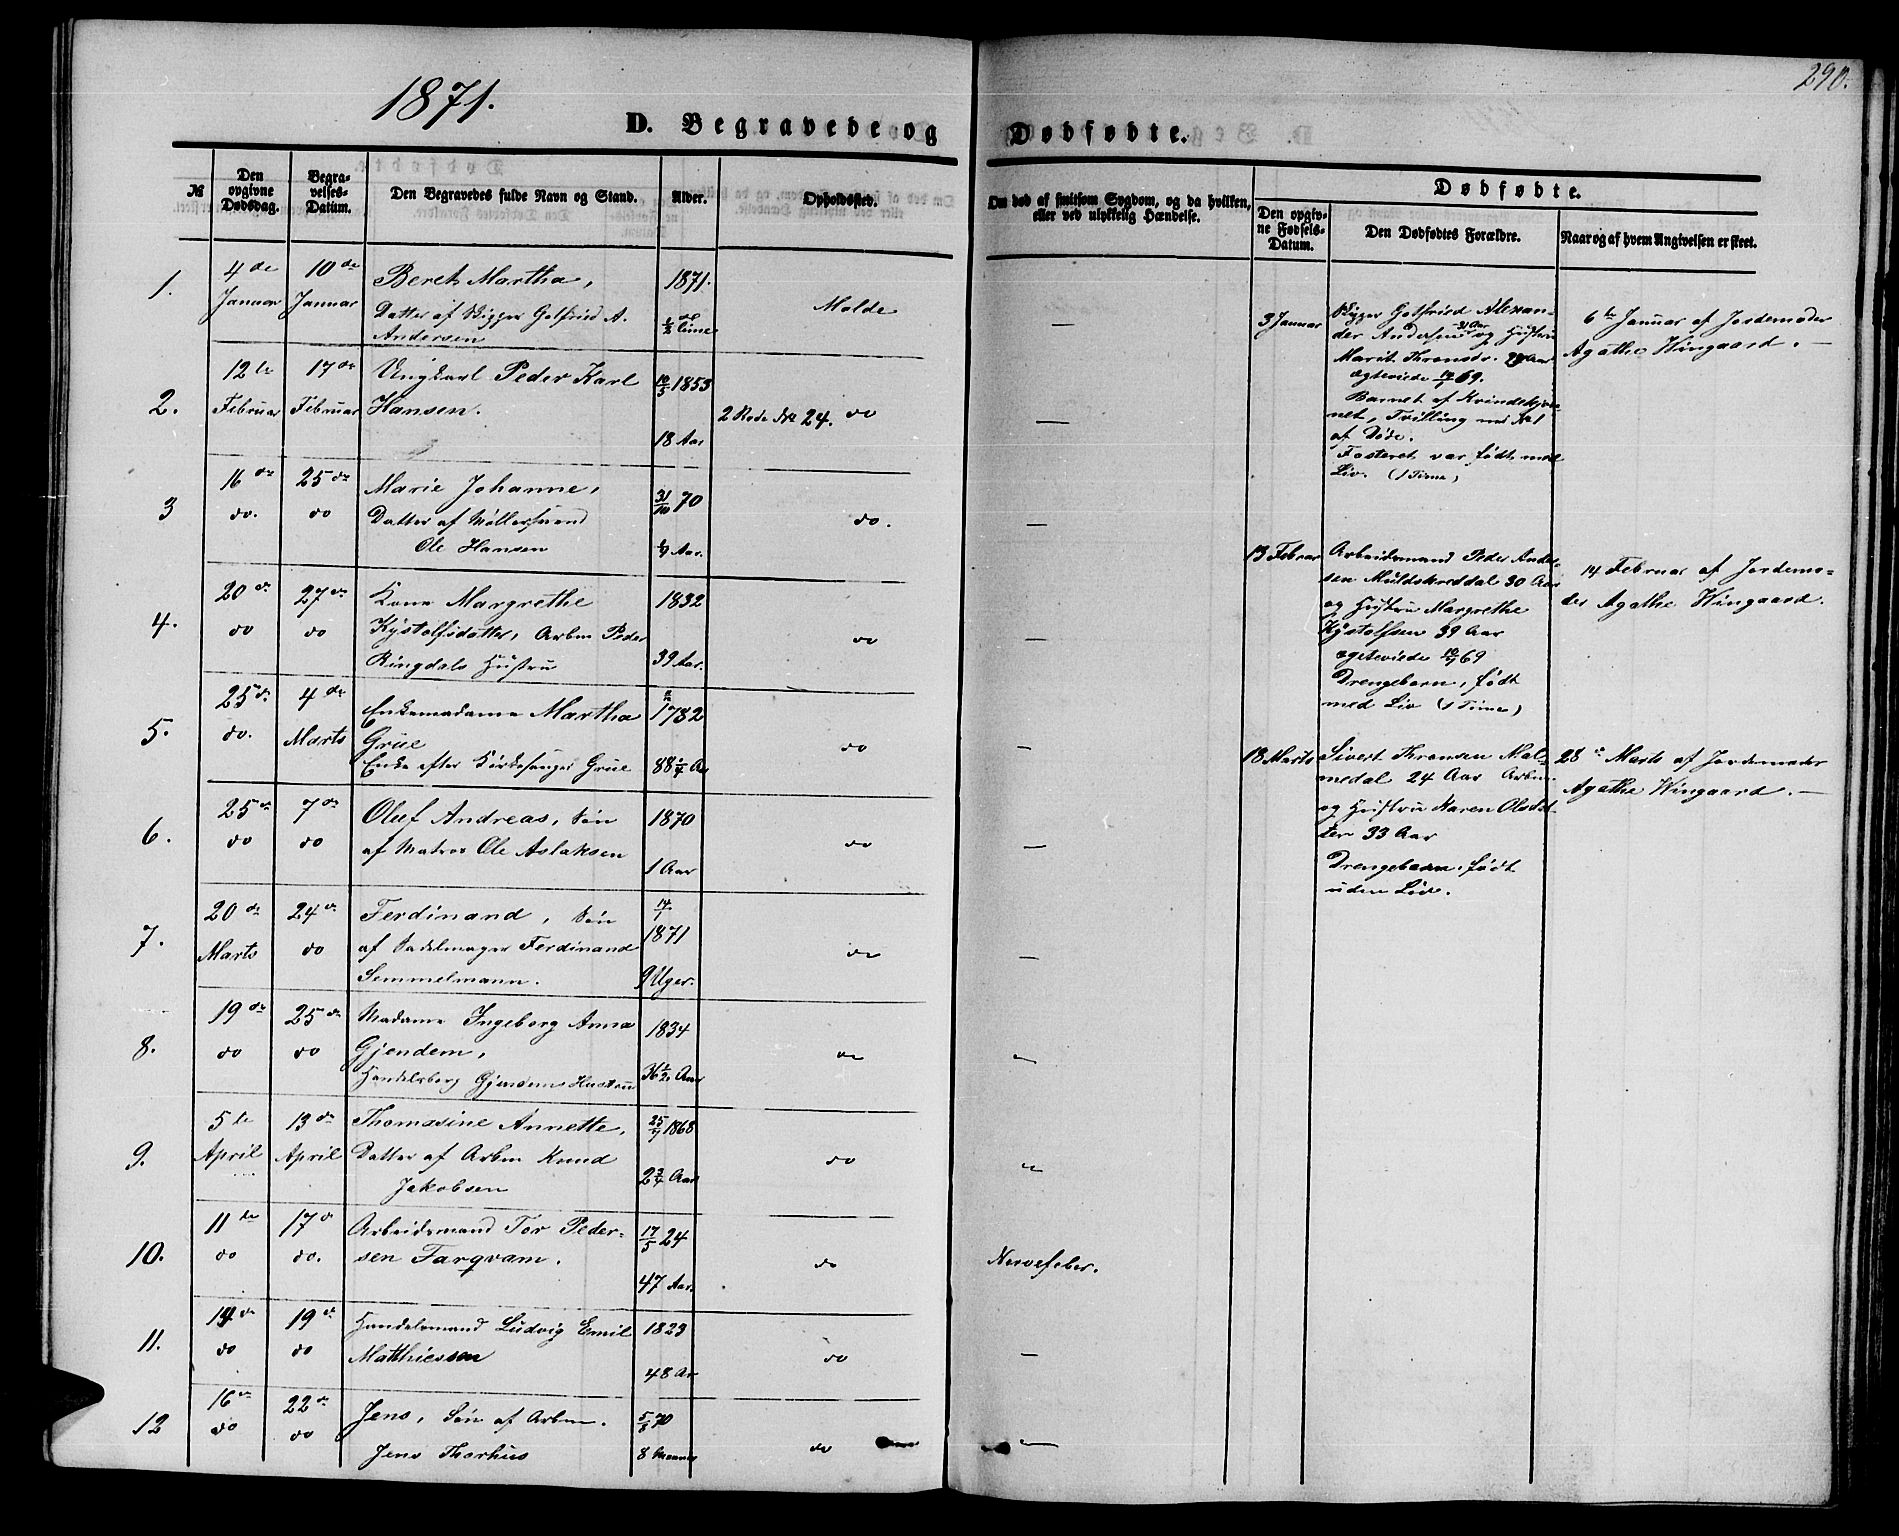 1871.
290.
D. Begravede og Dødfødte.
№
Den opgivne Dødsdag.
Begravelses-Datum.
Den Begravedes fulde Navn og Stand.
Alder.
Opholdssted.
Om død af smitsom Sygdom, og da hvilken, eller ved ulykkelig Hændelse.
Dødfødte.
Den opgivne Fødsels-Datum.
Den Dødfødtes Forældre.
Naar og af hvem Angivelsen er skeet.
1.
4de Januar
10de Januar
Beret Martha,
Datter af Bygger Gotfried A.
Andersen
1871.
Molde
—
3 Januar
Bygger Gotfried Alexan-
der Andersen 31 Aar og Hustru
Marit Thronsdr. 28 Aar
ægteviede 69.
Barnet af Kvindekjøn-
net, Tvilling med No 1
af Døde.
Fosteret var født med
Liv. (1 Time)
6te Januar af Jordemoder
Agathe Wingaard. —
2.
12te Februar
17de Februar
Ungkarl Peder Karl
Hansen.
1853
18 Aar
2 Rode No 24. do
—
3
16de do.
25de do
Marie Johanne,
Datter af Møllersvend
Ole Hansen
31/10 70
Aar.
do.
—
13 Februar
Arbeidsmand Peder Ander-
sen Muldskreddal 30 Aar
og Hustru Margrethe
Kystolfsen 39 Aar
ægteviede 69
Drengebarn, født
med Liv (1 Time)
14 Februar af Jordemo-
der Agathe Wingaard.
4.
20de do
27de do
Kone Margrethe
Kystolfsdatter, Arbm Peder
Ringdals Hustru
1832
39 Aar.
do
—
5.
25de do.
4de Marts
Enkemadame Martha
Grüe
Enke efter Kirkesanger Grüe
1782
88
do
—
18 Marts
Sivert Thronsen Mal-
medal 24 Aar Arbm.
og Hustru Karen Olsdat-
ter 33 Aar
Drengebarn, født
uden Live.
28de Marts af Jordemoder
Agathe Wingaard. —
6.
25de do
7de do
Oluf Andreas, Søn
af Matros Ole Aslaksen
1870
1 Aar
do
—
7.
20de Marts
24de do
Ferdinand, Søn
af Sadelmager Ferdinand
Semmelmann.
14/1 1871
9 Uger.
do
—
8.
19de do
25de do
Madame Ingeborg Anna
Gjendem,
Handelsborg Gjendems Hustru
1834
36½ Aar
do
9.
5te April
13de April
Thomasine Annette,
Datter af Arbm Knud
Jakobsen
1868
2 Aar
do
10.
11te do
17de do.
Arbeidsmand Tor Peder-
sen Farqvam.
17/5 24
47 Aar.
do
Nervefeber.
11.
14de do
19de do
Handelsmand Ludvig Emil
Matthiessen
1823
48 Ar
do
—
12
16de do
22de do
Jens, Søn af Arbm.
Jens Thorhus
5/8 70
8 Maaneder
do
—